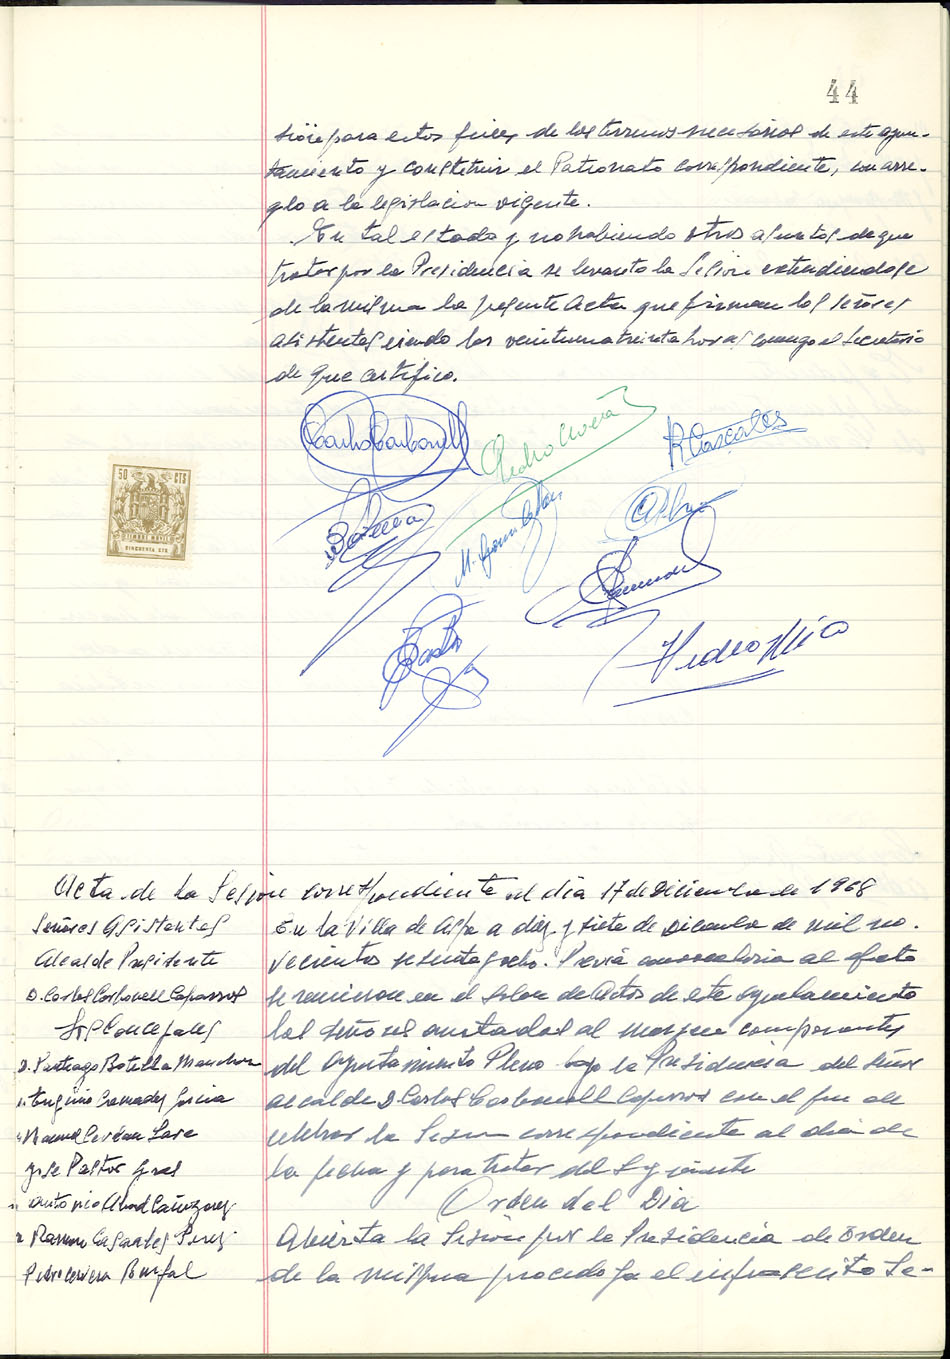 44
para estos fines de los terrenos necesarios de este ayun-
tamiento y construir el Patronato correspondiente, con arre-
glo a la legislacion vigente.
En tal estado y no habiendo otros asuntos de que
tratar por la Presidencia se levanto la Sesion extendiendose
de la misma la presente Acta que firman los señores
asistentes siendo las veintiuna treinta horas conmigo el Secretario
de que certifico.
Carlos Carbonell
Pedro Cervera
R Cascales
M. Cerdan
Pastor
Pedro Miró
50 CTS
TIMBRE MOVIL
CINCUENTA CTS
Acta de la Sesion correspondiente al dia 17 de Diciembre de 1968
Señores Asistentes
Alcalde Presidente
D. Carlos Carbonell Caparros
Sres Concejales
D. Santiago Botella Manchon
Eugenio Cremades Garcia
Manuel Cerdan Lara
Jose Pastor Gras
Antonio Abad Cañizares
Ramon Cascales Perez
Pedro Cervera Bonfal
En la Villa de Aspe a diez y siete de Diciembre de mil no-
vecientos sesenta y ocho. Previa convocatoria al efecto
se reunieron en el Salon de Actos de este Ayuntamiento
los señores anotados al margen componentes
del Ayuntamiento Pleno bajo la Presidencia del Señor
alcalde D Carlos Carbonell Caparros con el fin de
celebrar la Sesion correspondiente al dia de
la fecha y para tratar del siguiente
Orden del Dia
Abierta la Sesion por la Presidencia de orden
de la misma procedo yo el infrascrito Se-